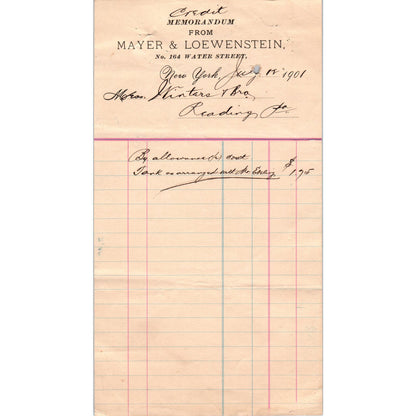 Credit
MEMORANDUM
FROM
MAYER & LOEWENSTEIN,
No. 164 WATER STREET.
New York, July 18 1901
Mess. Winters & Bro.
Reading, Pa.
By allowance for cost $
Tank as arranged with Mr 1.95